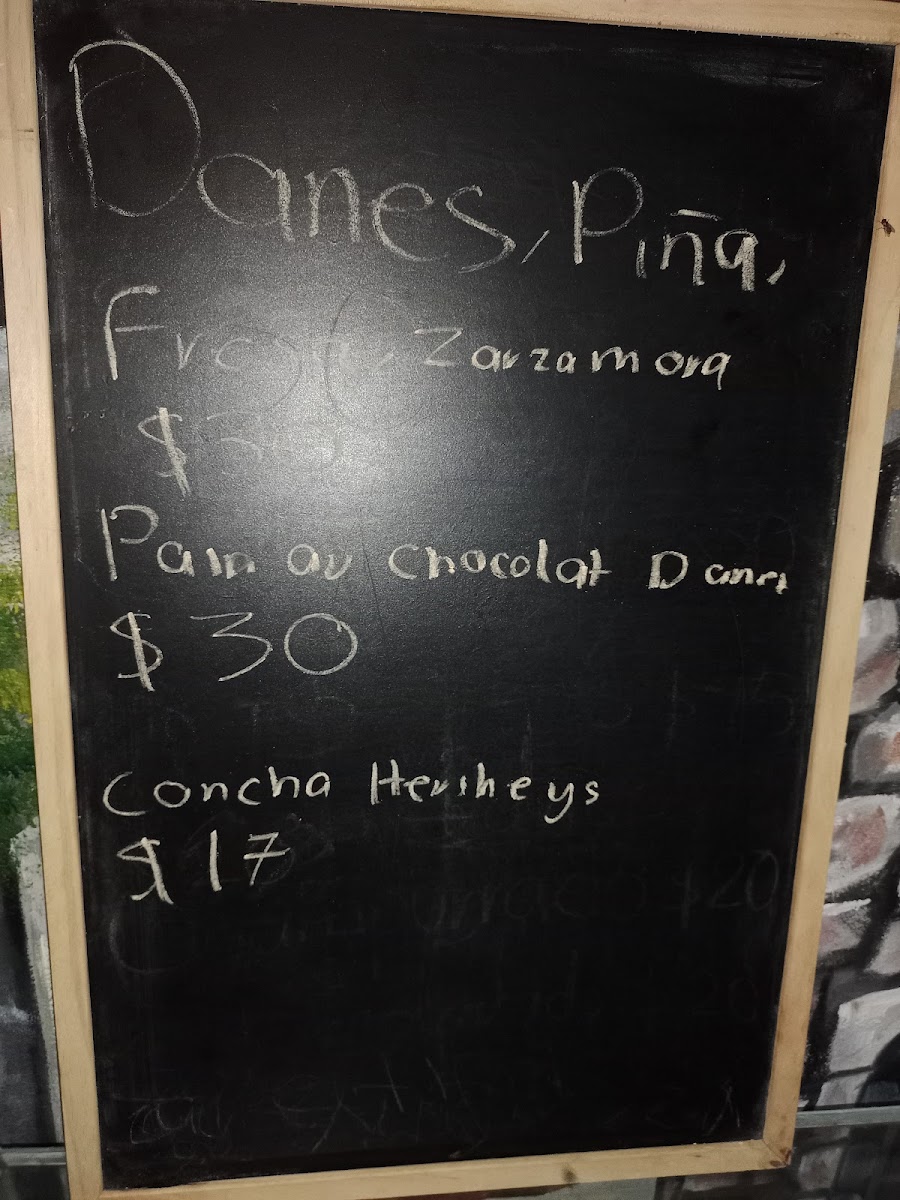 Danes, Piña,
Fresa, Zarzamora
$30
Pain au Chocolat Danes
$30
Concha Hersheys
$17
$20